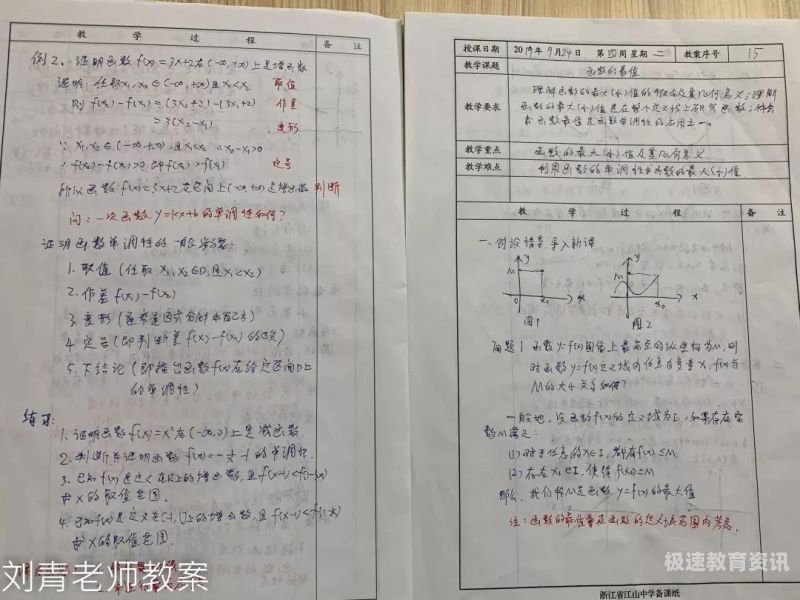 教 学 过 程 备 注
例2. 证明函数f(x)=3x+2在(-∞,+∞)上是增函数
证明:任取x₁,x₂∈(-∞,+∞),且x₁<x₂ 取值
则 f(x₂)-f(x₁)=(3x₂+2)-(3x₁+2) 作差
=3(x₂-x₁) 变形
∵ x₁,x₂∈(-∞,+∞),且x₁<x₂ ∴x₂-x₁>0
∴f(x₂)-f(x₁)>0 即f(x₂)>f(x₁) 定号
所以函数f(x)=3x+2在区间上(-∞,+∞)是增函数 判断
问:一次函数y=kx+b的单调性如何?
证明函数单调性的一般步骤:
1. 取值(任取x₁,x₂∈D,且x₁<x₂)
2. 作差f(x₁)-f(x₂)
3. 变形(通常是因式分解和配方)
4. 定号(即判断差f(x₁)-f(x₂)的正负)
5. 下结论(即指出函数f(x)在给定区间D上
的单调性)
练习:
1. 证明函数f(x)=x²在(-∞,0)上是减函数.
2. 判断并证明函数f(x)=-1/x-1的单调性.
3. 已知f(x)是定义在R上的增函数,且f(x-1)<f(1-3x)
求x的取值范围.
4. 已知f(x)是定义在[-1,1]上的增函数,且f(x-1)<f(1-x)
求x的取值范围.
刘青老师教案
授课日期 2019年9月24日 第四周星期二 教案序号 15
教学课题 函数的最值
教学要求 理解函数的最大(小)值的概念及其几何意义;理解
函数的最大(小)值是在整个定义域上研究函数;体会
求函数最值是函数单调性的应用之一.
教学重点 函数的最大(小)值及其几何意义
教学难点 利用函数的单调性求函数的最大(小)值
教 学 过 程 备 注
一、创设情景 导入新课
y M O x₀ x
y M O x₀ x
图1 图2
问题1 函数y=f(x)图像上最高点的纵坐标为M,则
对函数y=f(x)定义域内任意自变量x,f(x)与
M的大小关系如何?
一般地,设函数f(x)的定义域为I,如果存在实
数M满足:
(1)对于任意的x∈I,都有f(x)≤M.
(2)存在x₀∈I,使得f(x₀)=M
那么,我们称M是函数y=f(x)的最大值
注:函数的最值要在函数的定义域范围内考虑.
极速教育资讯
浙江省江山中学备课纸